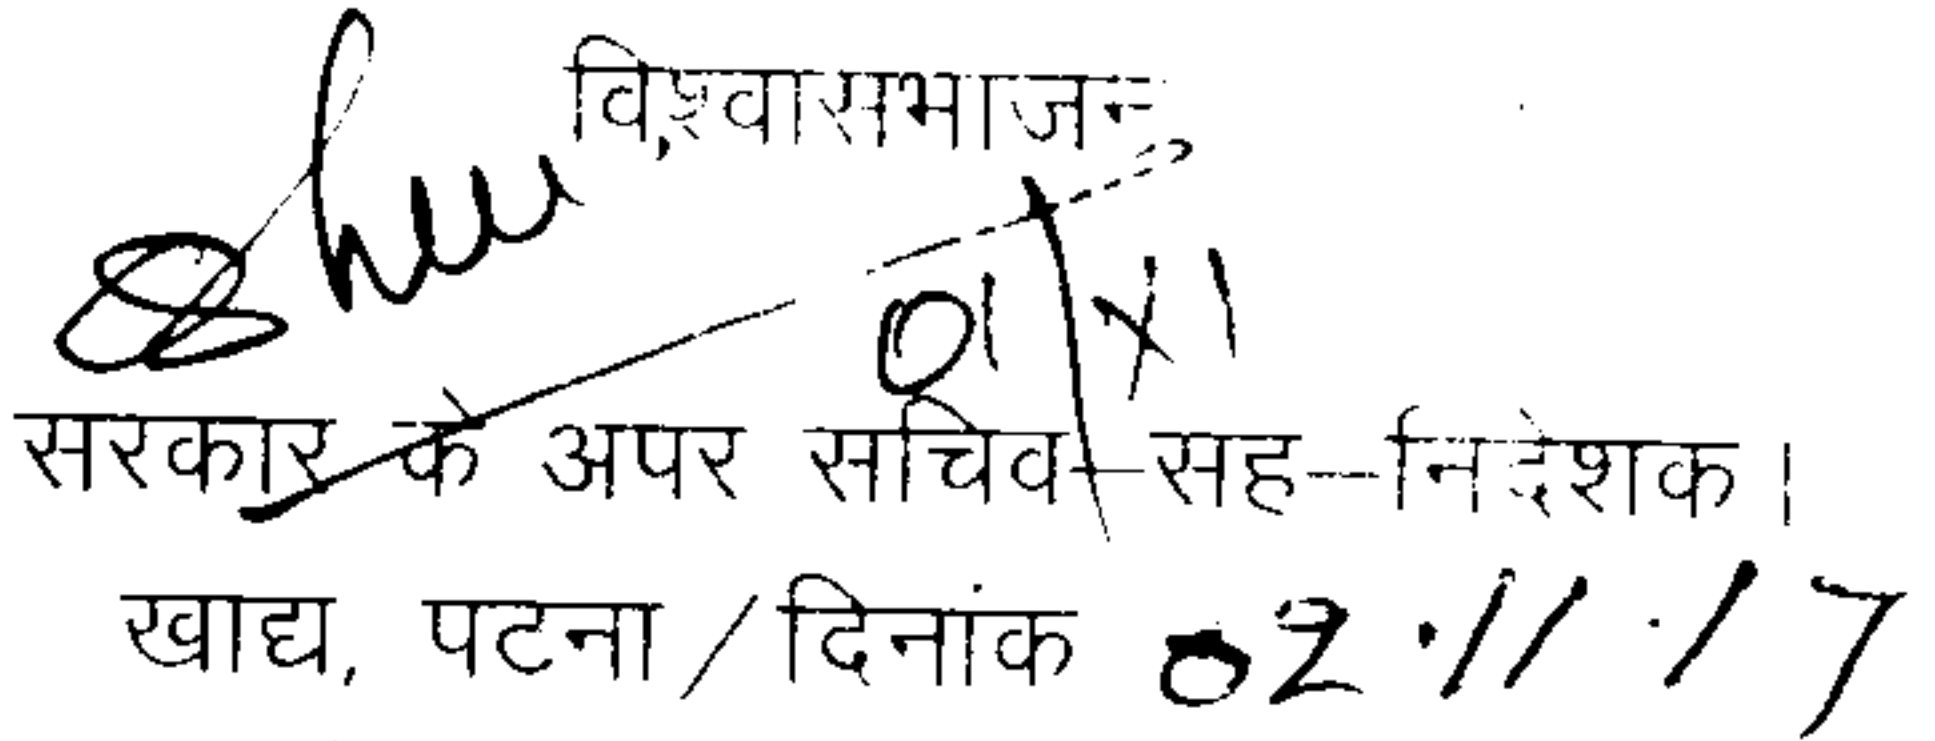 विश्वासभाजन
01/XI
सरकार के अपर सचिव-सह-निदेशक।
खाद्य, पटना/दिनांक 02.11.17